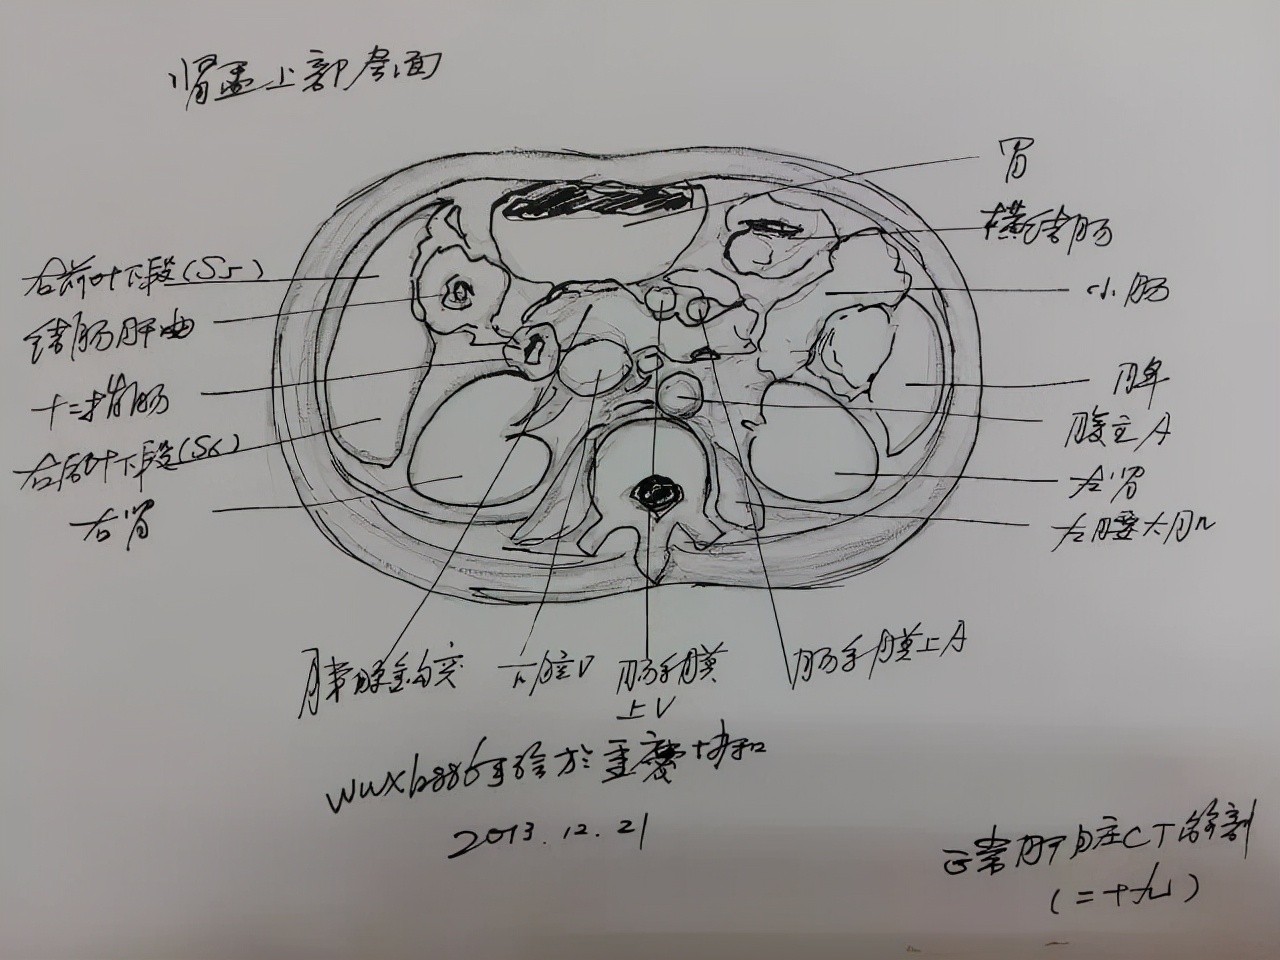 肾盂上部层面
胃
横结肠
右前叶下段(S5)
小肠
结肠肝曲
十二指肠
脾
腹主A
右后叶下段(S6)
左肾
右肾
左腰大肌
胰腺钩突
下腔V
肠系膜
上V
肠系膜上A
wwxb886手绘於重慶协和
2013.12.21
正常肝脏CT解剖
(二十九)